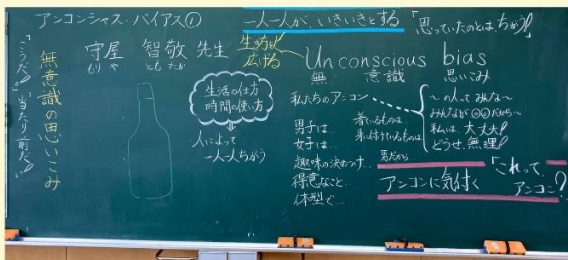 アンコンシャス・バイアス①
一人一人が、いきいきとする
「思っていたのとは、ちがう！」
生き方が
広げる
守屋 智敬 先生
もりや ともたか
Unconscious bias
無 意識 思いこみ
「こうだ！」「当たり前だ！」
無意識の思いこみ
生活の仕方
時間の使い方
人によって
一人一人ちがう
私たちのアンコン
男子は…
女子は…
趣味の決めつけ…
得意なこと…
体型で…
着ているものは
身に付けているものは
男だから
～の人って みんな～
みんなが ○○だから～
私は、大丈夫！
どうせ、無理！
アンコンに気付く
「これって、
アンコン？